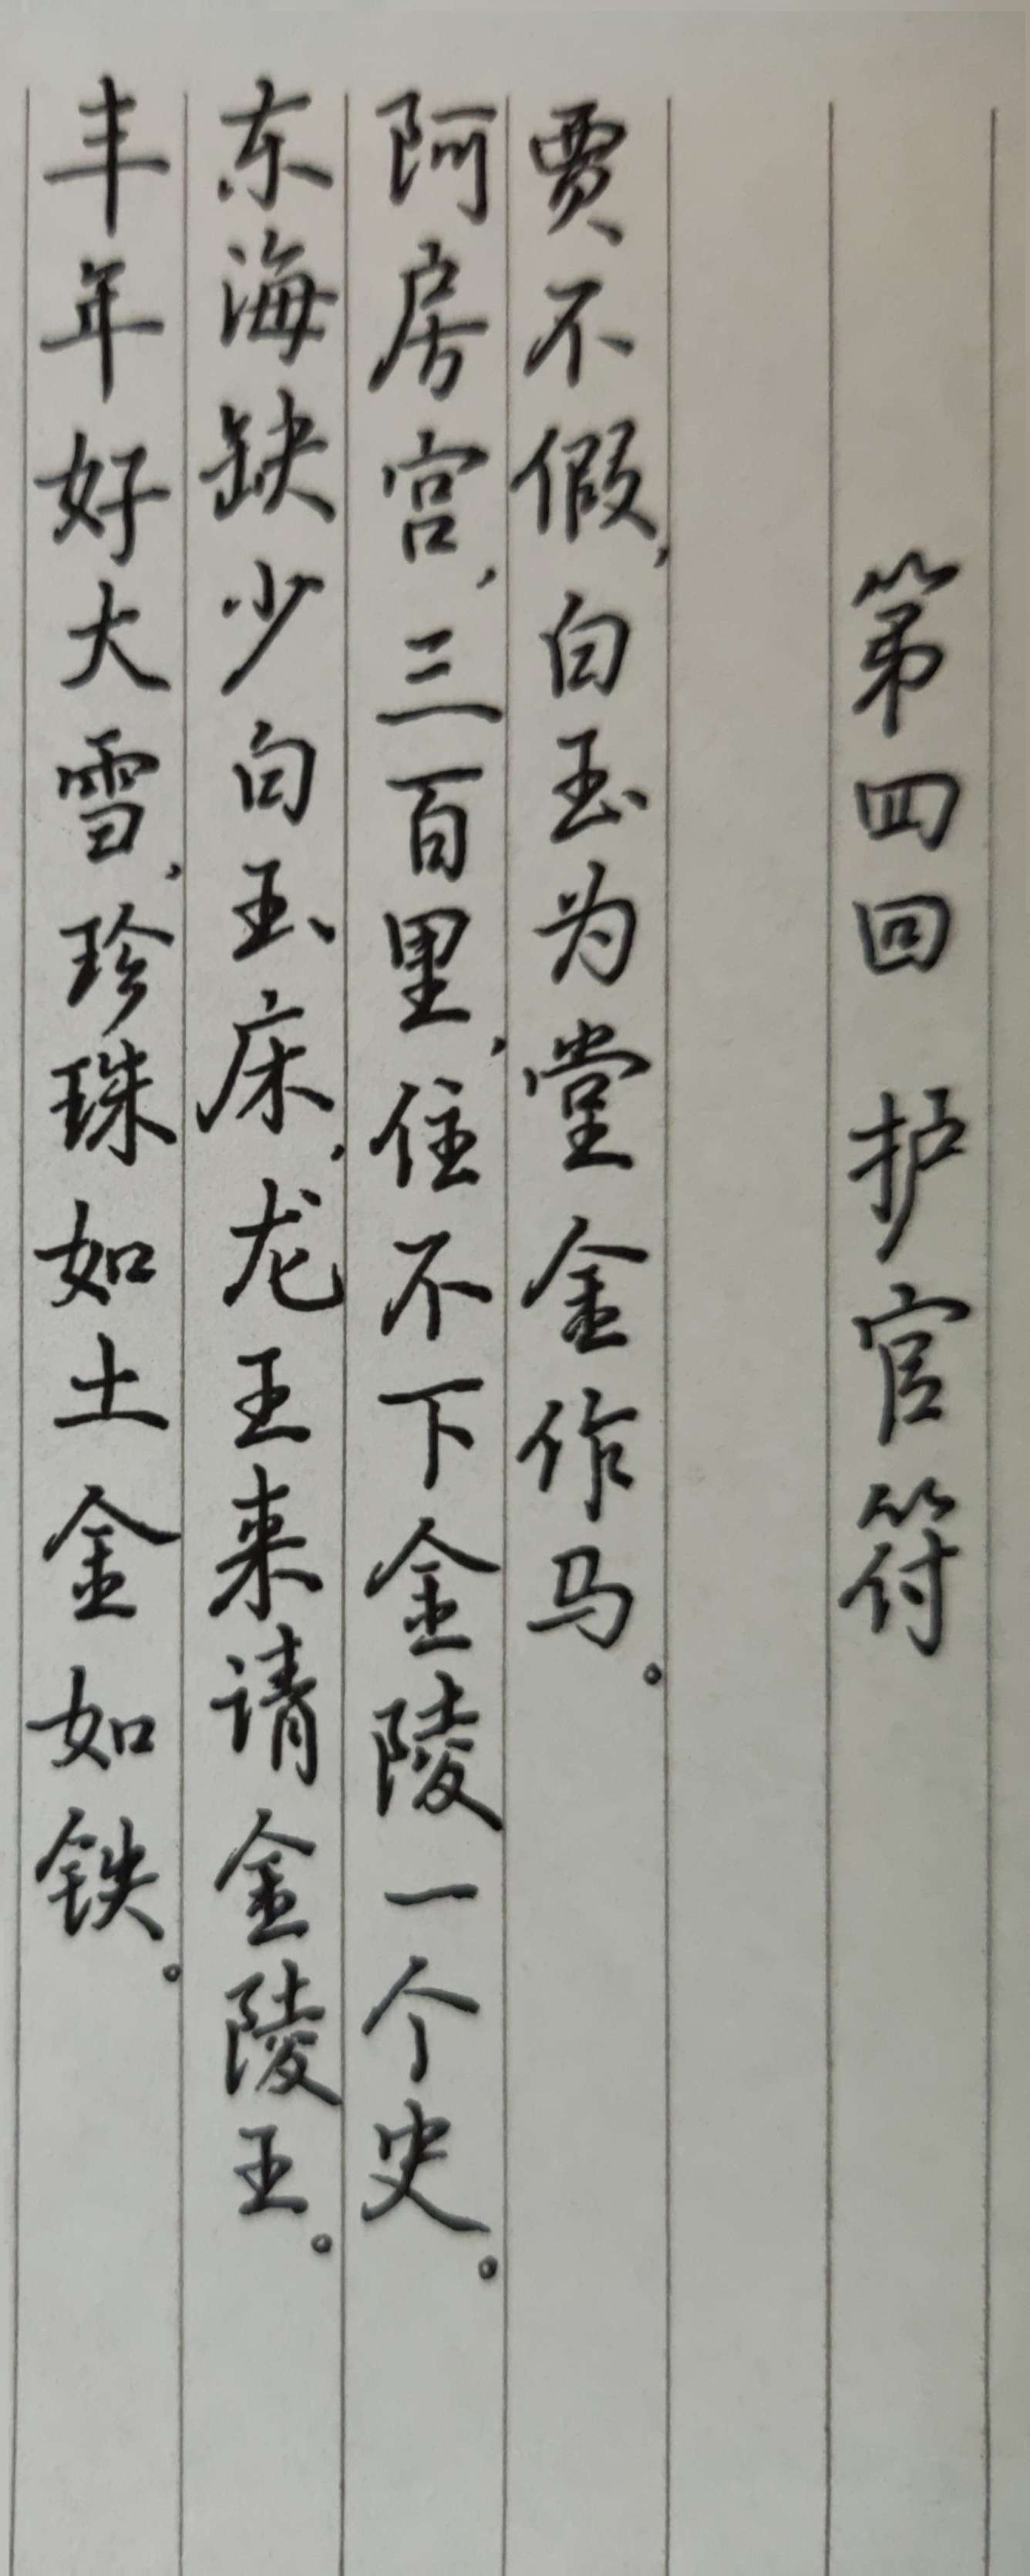 第四回 护官符
贾不假,白玉为堂金作马。
阿房宫,三百里,住不下金陵一个史。
东海缺少白玉床,龙王来请金陵王。
丰年好大雪,珍珠如土金如铁。